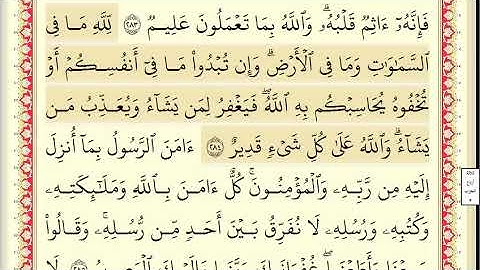 فَإِنَّهُۥٓ ءَاثِمٌ قَلْبُهُۥ ۗ وَٱللَّهُ بِمَا تَعْمَلُونَ عَلِيمٌ ٢٨٣ لِّلَّهِ مَا فِى
ٱلسَّمَٰوَٰتِ وَمَا فِى ٱلْأَرْضِ ۗ وَإِن تُبْدُوا۟ مَا فِىٓ أَنفُسِكُمْ أَوْ
تُخْفُوهُ يُحَاسِبْكُم بِهِ ٱللَّهُ ۖ فَيَغْفِرُ لِمَن يَشَآءُ وَيُعَذِّبُ مَن
يَشَآءُ ۗ وَٱللَّهُ عَلَىٰ كُلِّ شَىْءٍ قَدِيرٌ ٢٨٤ ءَامَنَ ٱلرَّسُولُ بِمَآ أُنزِلَ
إِلَيْهِ مِن رَّبِّهِۦ وَٱلْمُؤْمِنُونَ ۚ كُلٌّ ءَامَنَ بِٱللَّهِ وَمَلَٰٓئِكَتِهِۦ
وَكُتُبِهِۦ وَرُسُلِهِۦ لَا نُفَرِّقُ بَيْنَ أَحَدٍ مِّن رُّسُلِهِۦ ۚ وَقَالُوا۟